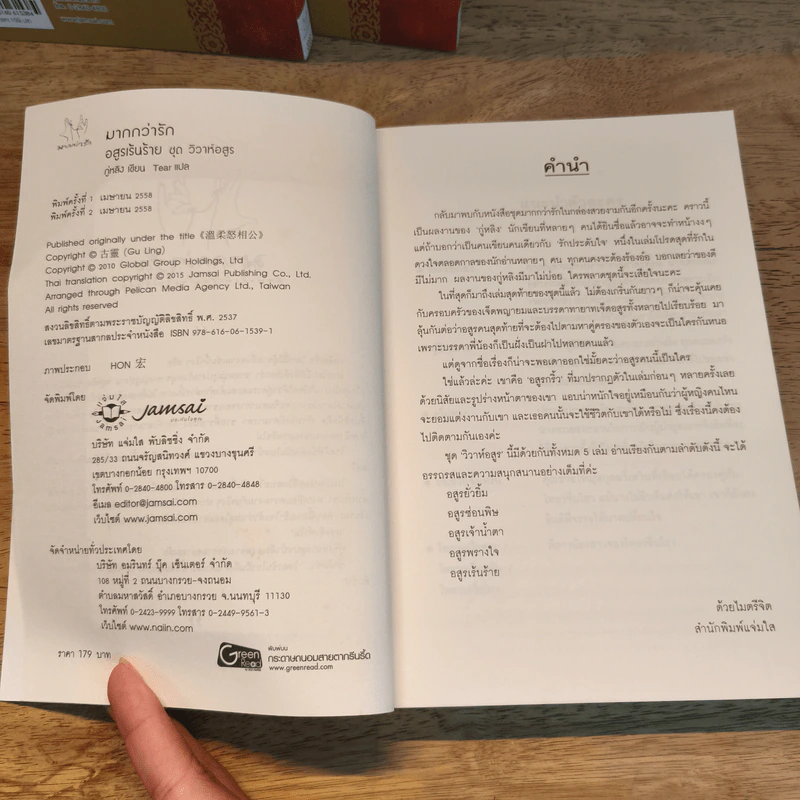 www.jamsai.com
มากกว่ารัก
มากกว่ารัก
อสูรเร้นร้าย ชุด วิวาห์อสูร
กู่หลิง เขียน Tear แปล
พิมพ์ครั้งที่ 1 เมษายน 2558
พิมพ์ครั้งที่ 2 เมษายน 2558
Published originally under the title《溫柔怒相公》
Copyright © 古靈 (Gu Ling)
Copyright © 2010 Global Group Holdings, Ltd
Thai translation copyright © 2015 Jamsai Publishing Co., Ltd.
Arranged through Pelican Media Agency Ltd., Taiwan
All rights reserved
สงวนลิขสิทธิ์ตามพระราชบัญญัติลิขสิทธิ์ พ.ศ. 2537
เลขมาตรฐานสากลประจำหนังสือ ISBN 978-616-06-1539-1
ภาพประกอบ HON 宏
จัดพิมพ์โดย
แจ่มใส
Jamsai
Jamsai
บริษัท แจ่มใส พับลิชชิ่ง จำกัด
285/33 ถนนจรัญสนิทวงศ์ แขวงบางขุนศรี
เขตบางกอกน้อย กรุงเทพฯ 10700
โทรศัพท์ 0-2840-4800 โทรสาร 0-2840-4848
อีเมล editor@jamsai.com
เว็บไซต์ www.jamsai.com
จัดจำหน่ายทั่วประเทศโดย
บริษัท อมรินทร์ บุ๊ค เซ็นเตอร์ จำกัด
108 หมู่ที่ 2 ถนนบางกรวย-จงถนอม
ตำบลมหาสวัสดิ์ อำเภอบางกรวย จ.นนทบุรี 11130
โทรศัพท์ 0-2423-9999 โทรสาร 0-2449-9561-3
เว็บไซต์ www.naiin.com
ราคา 179 บาท
Green
Read
พิมพ์บน
กระดาษถนอมสายตากรีนรี้ด
www.greenread.com
คำนำ
กลับมาพบกับหนังสือชุดมากกว่ารักในกล่องสวยงามกันอีกครั้งนะคะ คราวนี้
เป็นผลงานของ 'กู่หลิง' นักเขียนที่หลายๆ คนได้ยินชื่อแล้วอาจจะทำหน้างงๆ
แต่ถ้าบอกว่าเป็นคนเขียนคนเดียวกับ 'รักประดับใจ' หนึ่งในเล่มโปรดสุดที่รักใน
ดวงใจตลอดกาลของนักอ่านหลายๆ คน ทุกคนคงจะต้องร้องอ๋อ บอกเลยว่าของดี
มีไม่มาก ผลงานของกู่หลิงมีมาไม่บ่อย ใครพลาดชุดนี้จะเสียใจนะคะ
ในที่สุดก็มาถึงเล่มสุดท้ายของชุดนี้แล้ว ไม่ต้องเกริ่นกันยาวๆ ก็น่าจะคุ้นเคย
กับครอบครัวของเจ็ดพญายมและบรรดาทายาทเจ็ดอสูรทั้งหลายไปเรียบร้อย มา
ลุ้นกันต่อว่าอสูรคนสุดท้ายที่จะต้องไปตามหาคู่ครองของตัวเองจะเป็นใครกันหนอ
เพราะบรรดาพี่น้องก็เป็นฝั่งเป็นฝาไปหลายคนแล้ว
แต่ดูจากชื่อเรื่องก็น่าจะพอเดาออกใช่มั้ยคะว่าอสูรคนนี้เป็นใคร
ใช่แล้วล่ะค่ะ เขาคือ 'อสูรกริ้ว' ที่มาปรากฏตัวในเล่มก่อนๆ หลายครั้งเลย
ด้วยนิสัยและรูปร่างหน้าตาของเขา แอบน่าหนักใจอยู่เหมือนกันว่าผู้หญิงคนไหน
จะยอมแต่งงานกับเขา และเธอคนนั้นจะใช้ชีวิตกับเขาได้หรือไม่ ซึ่งเรื่องนี้คงต้อง
ไปติดตามกันเองค่ะ
ชุด 'วิวาห์อสูร' นี้มีด้วยกันทั้งหมด 5 เล่ม อ่านเรียงกันตามลำดับดังนี้ จะได้
อรรถรสและความสนุกสนานอย่างเต็มที่ค่ะ
อสูรยั่วยิ้ม
อสูรซ่อนพิษ
อสูรเจ้าน้ำตา
อสูรพรางใจ
อสูรเร้นร้าย
ด้วยไมตรีจิต
สำนักพิมพ์แจ่มใส